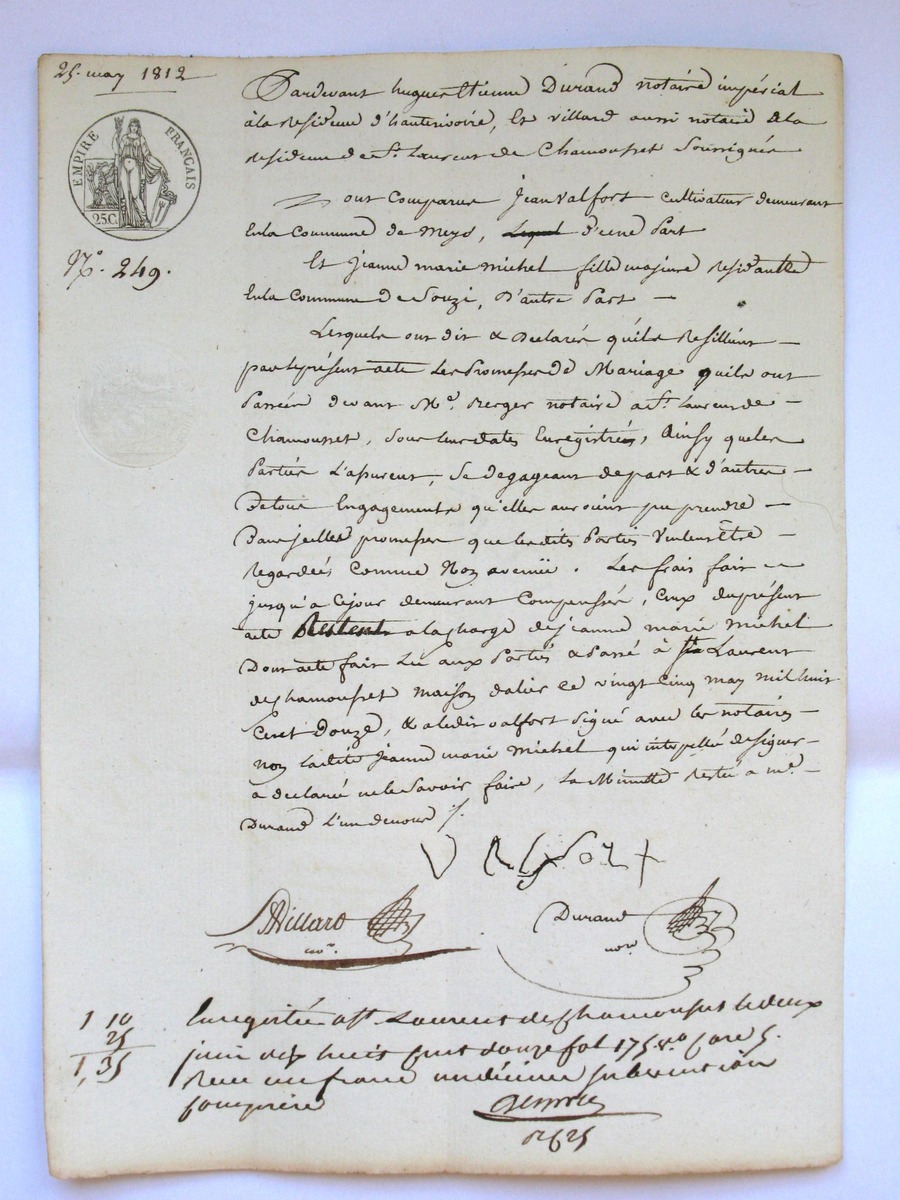 25. may 1812
EMPIRE FRANÇAIS
25 C.
N.º 249.
Pardevant hugues Etienne Durand notaire impérial
à la Residence d'hauterivoire, Et villard aussi notaire de la
Residence de St. Laurent de Chamousset Soussignés
ont Comparus Jean Valfort cultivateur demeurant
En la Commune de Meys, d'une Part
Et jeanne marie Michel fille majeure Residante
En la Commune de Souzi, D'autre Part —
Lesquels ont dit & Declarés qu'ils Resillient —
par le présent acte Les Promesses De Mariage qu'ils ont
Passées devant Me. Berger notaire a St. Laurent de —
Chamousset, Sous leur dates Enregistrées, Ainsy que les
Parties L'assurent, Se Degageant de part & d'autres —
De tous Engagements qu'elles auroient pu prendre —
Dans jcelles promesses que lesdites Parties Veulent Etre —
Regardées Comme Non avenüe. Les frais fait —
jusqu'a Cejour demeurant Compensés, Ceux du présent
acte Restent a la charge de jeanne marie Michel
Dont acte fait Lu aux Parties & Passé à St. Laurent
de Chamousset maison dalier ce vingt cinq may mil huit
Cent Douze, & a ledit valfort Signé avec les notaires —
non Ladite jeanne marie Michel qui interpellée de Signer —
a declaré ne le Savoir faire, La Minutte Restée a me. —
Durand L'un de nous ⁒
Villard
Durand
nore
1 10
25
1, 35
Enregistré a St. Laurent de chamousset le deux
juin dix huit cent douze fol 175 vo care 5.
Recu un franc un décime subvention
comprise